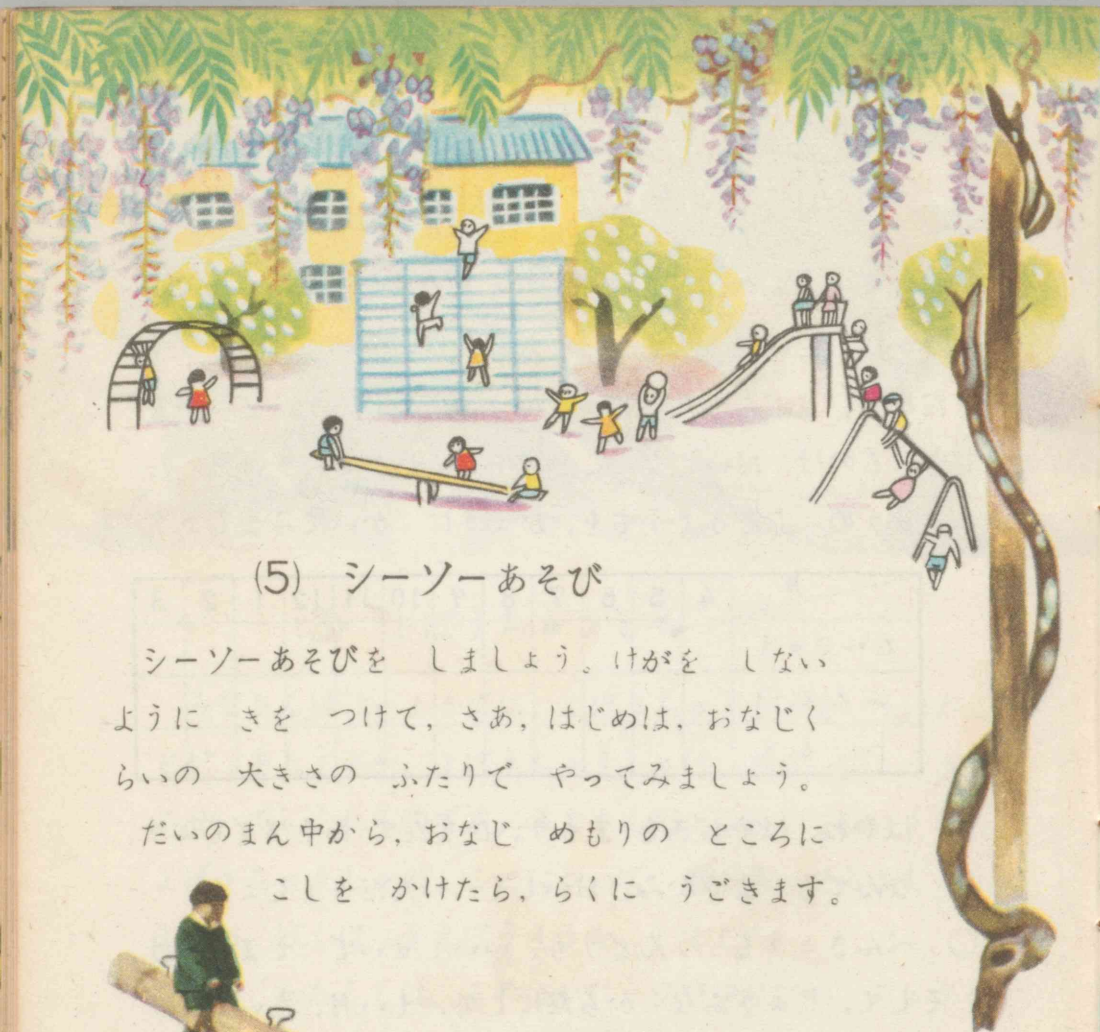 (5) シーソーあそび
シーソーあそびを　しましょう。けがを　しない
ように　きを　つけて，さあ，はじめは，おなじく
らいの　大きさの　ふたりで　やってみましょう。
だいのまん中から，おなじ　めもりの　ところに
こしを　かけたら，らくに　うごきます。